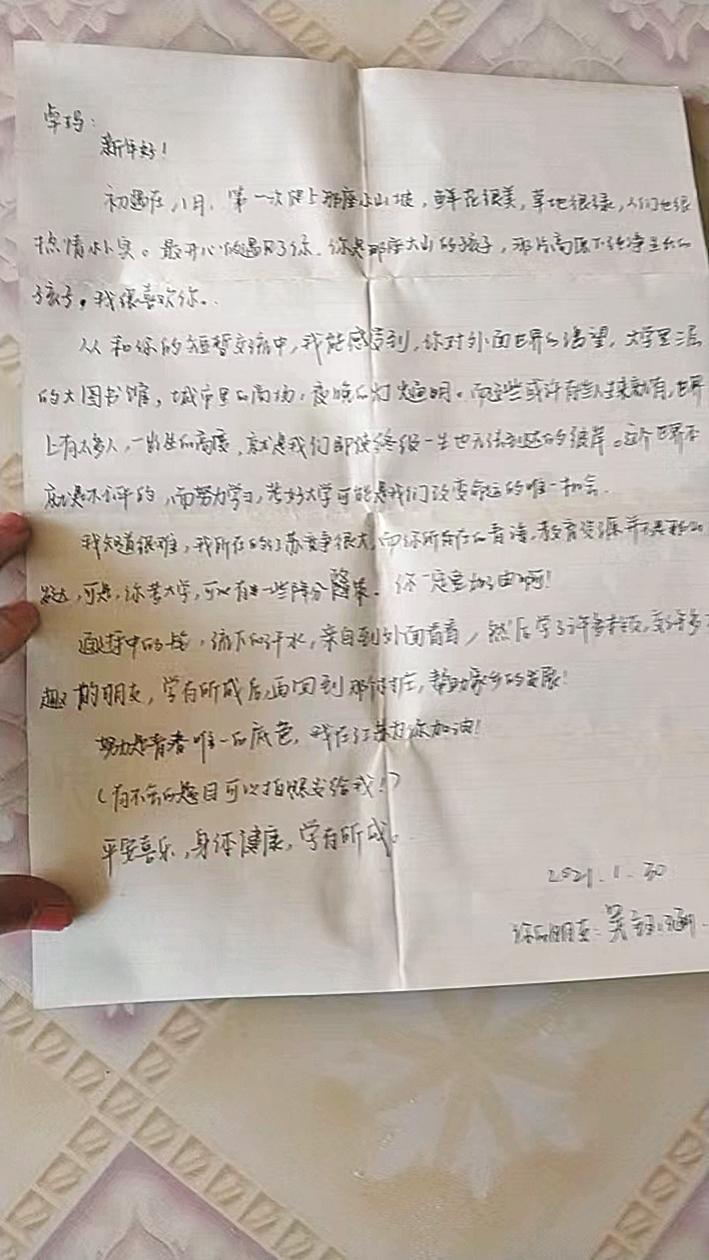 卓玛：
新年好！
初遇在八月，第一次爬上那座小山坡，鲜花很美，草地很绿，人们也很
热情朴实。最开心的遇见了你。你是那座大山的孩子，那片高原下纯净生长的
孩子，我很喜欢你。
从和你的短暂交流中，我能感受到，你对外面世界的渴望，大学里三层
的大图书馆，城市里的商场，夜晚的灯火通明。而这些或许有些人生来就有，世界
上有太多人，一出生的高度，就是我们即使终级一生也无法到达的彼岸。这个世界本
就是不公平的，而努力学习，考好大学可能是我们改变命运的唯一机会。
我知道很难，我所在的江苏竞争很大，而你所在的青海，教育资源并不是
发达，可是，你考大学，可以有一些降分政策。你一定要加油啊！
通过中的，流下的汗水，亲自到外面看看，然后学了许多，交许多
趣的朋友，学有所成后，再回到那个村庄，帮助家乡的发展！
努力是青春唯一的底色，我在江苏为你加油！
（有不会的题目可以拍照发给我！）
平安喜乐，身体健康，学有所成。
2021.1.30
你的朋友：吴